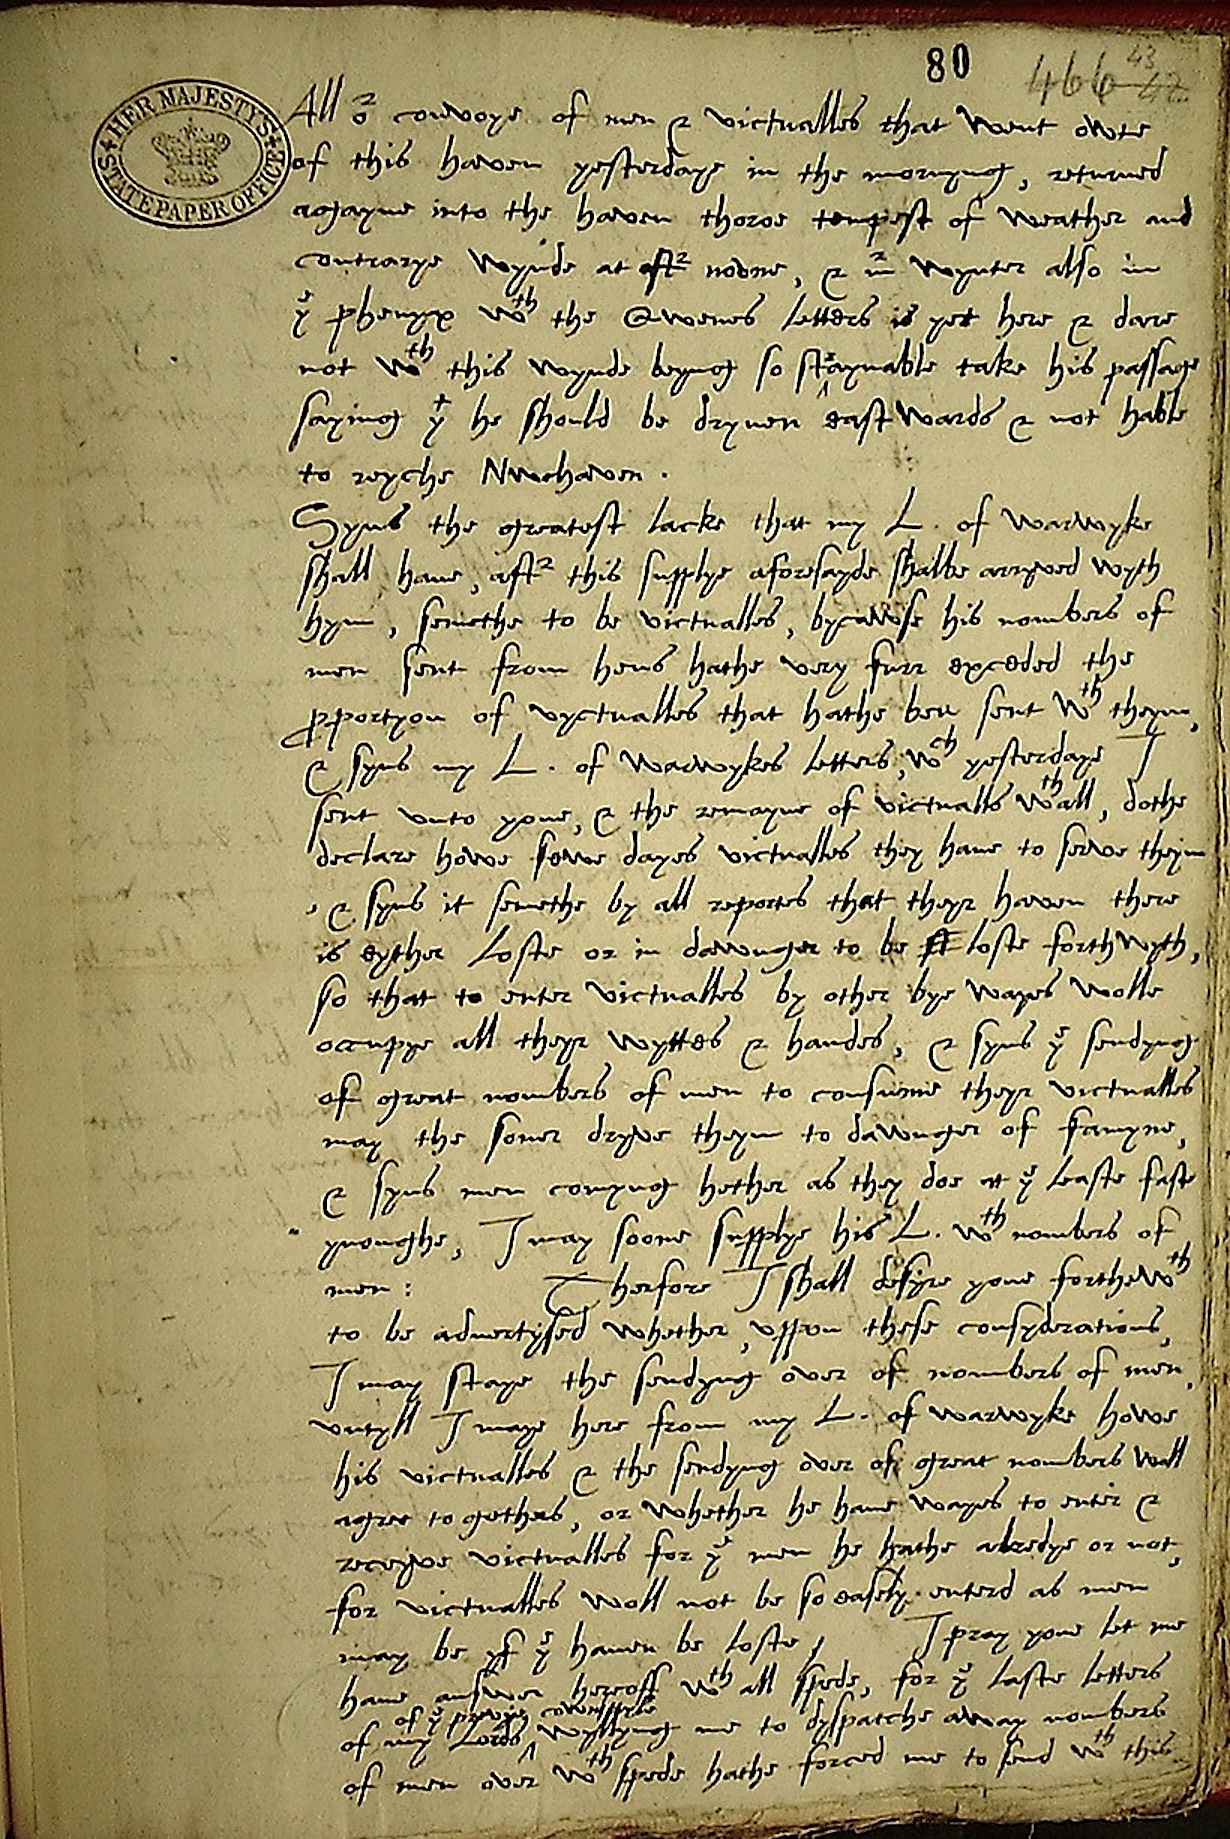 80
466 43
42
HER MAJESTYS
STATE PAPER OFFICE
All or convoye of men & victualles that went owte
of this haven yesterdaye in the mornyng, returned
agayne into the haven thoroe tempest of weather and
contrarye wynde at aftr noone, & mr wynter also in
ye phenyx wth the Qwenes letters is yet here & dare
not wth this wynde beyng so straynable take his passage
saying yt he should be dryven eastwards & not hable
to reyche Nwehaven.
Syns the greatest lacke that my L. of warwyke
shall have, aftr this supplye aforesayde shalbe arryved wyth
hym, semethe to be victualles, bycawse his nombers of
men sent from hens hathe very furr exceded the
pportyon of vyctualles that hathe ben sent wth theym,
& syns my L. of warwykes letters, wch yesterdaye I
sent unto yowe, & the remayne of victualls wthall, dothe
declare howe fewe dayes victualles they have to serve theym
, & syns it semethe by all reportes that theyr haven there
is eyther loste or in dawnger to be loste forthwyth,
so that to enter victualles by other bye wayes wolle
occupye all theyr wyttes & handes, & syns ye sendyng
of great nombers of men to consume theyr victualles
may the soner dryve theym to dawnger of famyne,
& syns men comyng hether as they doe at ye leaste faste
ynoughe, I may soone supplye his L. wth nombers of
men: Therfore I shall desyre yowe forthewth
to be advertysed whether, uppon these consyderations,
I may staye the sendyng over of nombers of men,
untyll I maye here from my L. of warwyke howe
his victualles & the sendyng over of great nombers woll
agree togethers, or whether he have wayes to enter &
receyve victualles for ye men he hathe alredye or not,
for victualles woll not be so easely enterd as men
may be yf ye haven be loste / I pray yowe let me
have answer hereoff wth all spede, for ye laste letters
of ye pryvie cownsayle
of my Lords ^ wyllyng me to dyspatche away nombers
of men over wth spede hathe forced me to send wth this